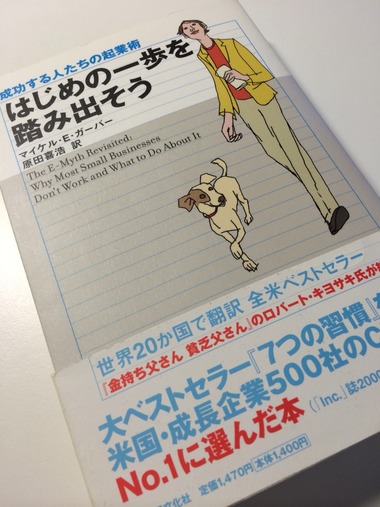 成功する人たちの起業術
はじめの一歩を
踏み出そう
マイケル・E・ガーバー
原田喜浩 訳
The E-Myth Revisited:
Why Most Small Businesses
Don't Work and What to Do About It
世界20か国で翻訳 全米ベストセラー
『金持ち父さん 貧乏父さん』のロバート・キヨサキ氏が
大ベストセラー『7つの習慣』
米国・成長企業500社のC
No.1に選んだ本
(「Inc.」誌2000
文化社 定価1,470円 本体1,400円